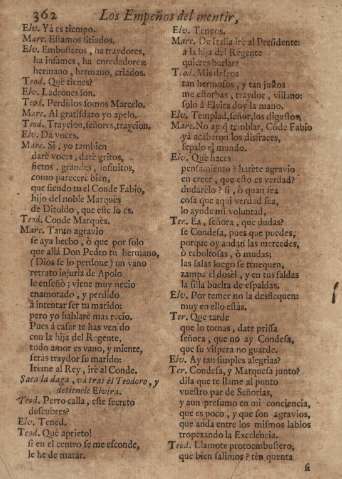 362 Los Empeños del mentir,
Elv. Ya es tiempo.
Marc. Estamos sitiados.
Elv. Embusteros, ha traydores,
ha infames, ha enredadores
hermano, hermano, criados.
Teod. Què tienes?
Elv. Ladrones son.
Teod. Perdidos somos Marcelo.
Marc. Al gratisdato apelo.
Teod. Traycion, señores, traycion.
Elv. Dà voces.
Marc. Sì, yo tambien
darè voces, darè gritos,
fieros, grandes, infinitos,
como parecen bien,
que siendo tu el Conde Fabio,
hijo del noble Marquès
de Ditoldo, que este lo es.
Teod. Conde Marquès.
Marc. Tanto agravio
se aya hecho, ò que por solo
que allà Don Pedro tu hermano,
(Dios se lo perdone) un vano
retrato injuria de Apolo
lo enseñò; viene muy necio
enamorado, y perdido
à intentar ser tu marido:
pero yo hablarè mas recio.
Pues à casar te has ven do
con la hija del Regente,
todo amor es vano, y miente,
seràs traydor su marido:
Ireme al Rey, irè al Conde.
Saca la daga, và tras èl Teodoro, y
detienele Elvira.
Teod. Perro calla, este secreto
descubres?
Elv. Tened.
Teod. Què aprieto!
si en el centro se me esconde,
le he de matar.
Elv. Teneos.
Marc. De Italia irè al Presidente:
à la hija del Regente
quieres burlar?
Teod. Mis deseos
tan hermosos, y tan justos
me estorbas, traydor, villano:
solo à Elvira doy la mano.
Elv. Templad, señor, los disgustos.
Marc. No ay templar, Conde Fabio
yà acabaron los disfraces,
sepalo el mundo.
Elv. Què haces
pensamiento? harète agravio
en creer, que esto es verdad?
dudarèlo? sì, ò quan sea
cosa que aqui verdad sea,
lo ayude mi voluntad.
Ter. Ea, señora, que dudas?
sè Condesa, pues que puedes,
porque oy andan las mercedes,
ò reboleosas, ò mudas;
las salas luego se truequen,
zampa el dosèl, y en tus faldas
la silla buelta de espaldas.
Elv. Por temer no la desflequen
muy en ello estàs.
Ter. Que tarde
que lo tomas, date prissa
señora, que no ay Condesa,
que su vispera no guarde.
Elv. Ay tan simples alegrias?
Ter. Condesa, y Marquesa junto?
dila que te llame al punto
vuestro par de Señorias,
y aun presumo en mi conciencia,
que es poco, y que son agravios,
que anda entre los mismos labios
tropezando la Excelencia.
Teod. Llamote protoembustero,
que bien salimos? tèn quenta
si